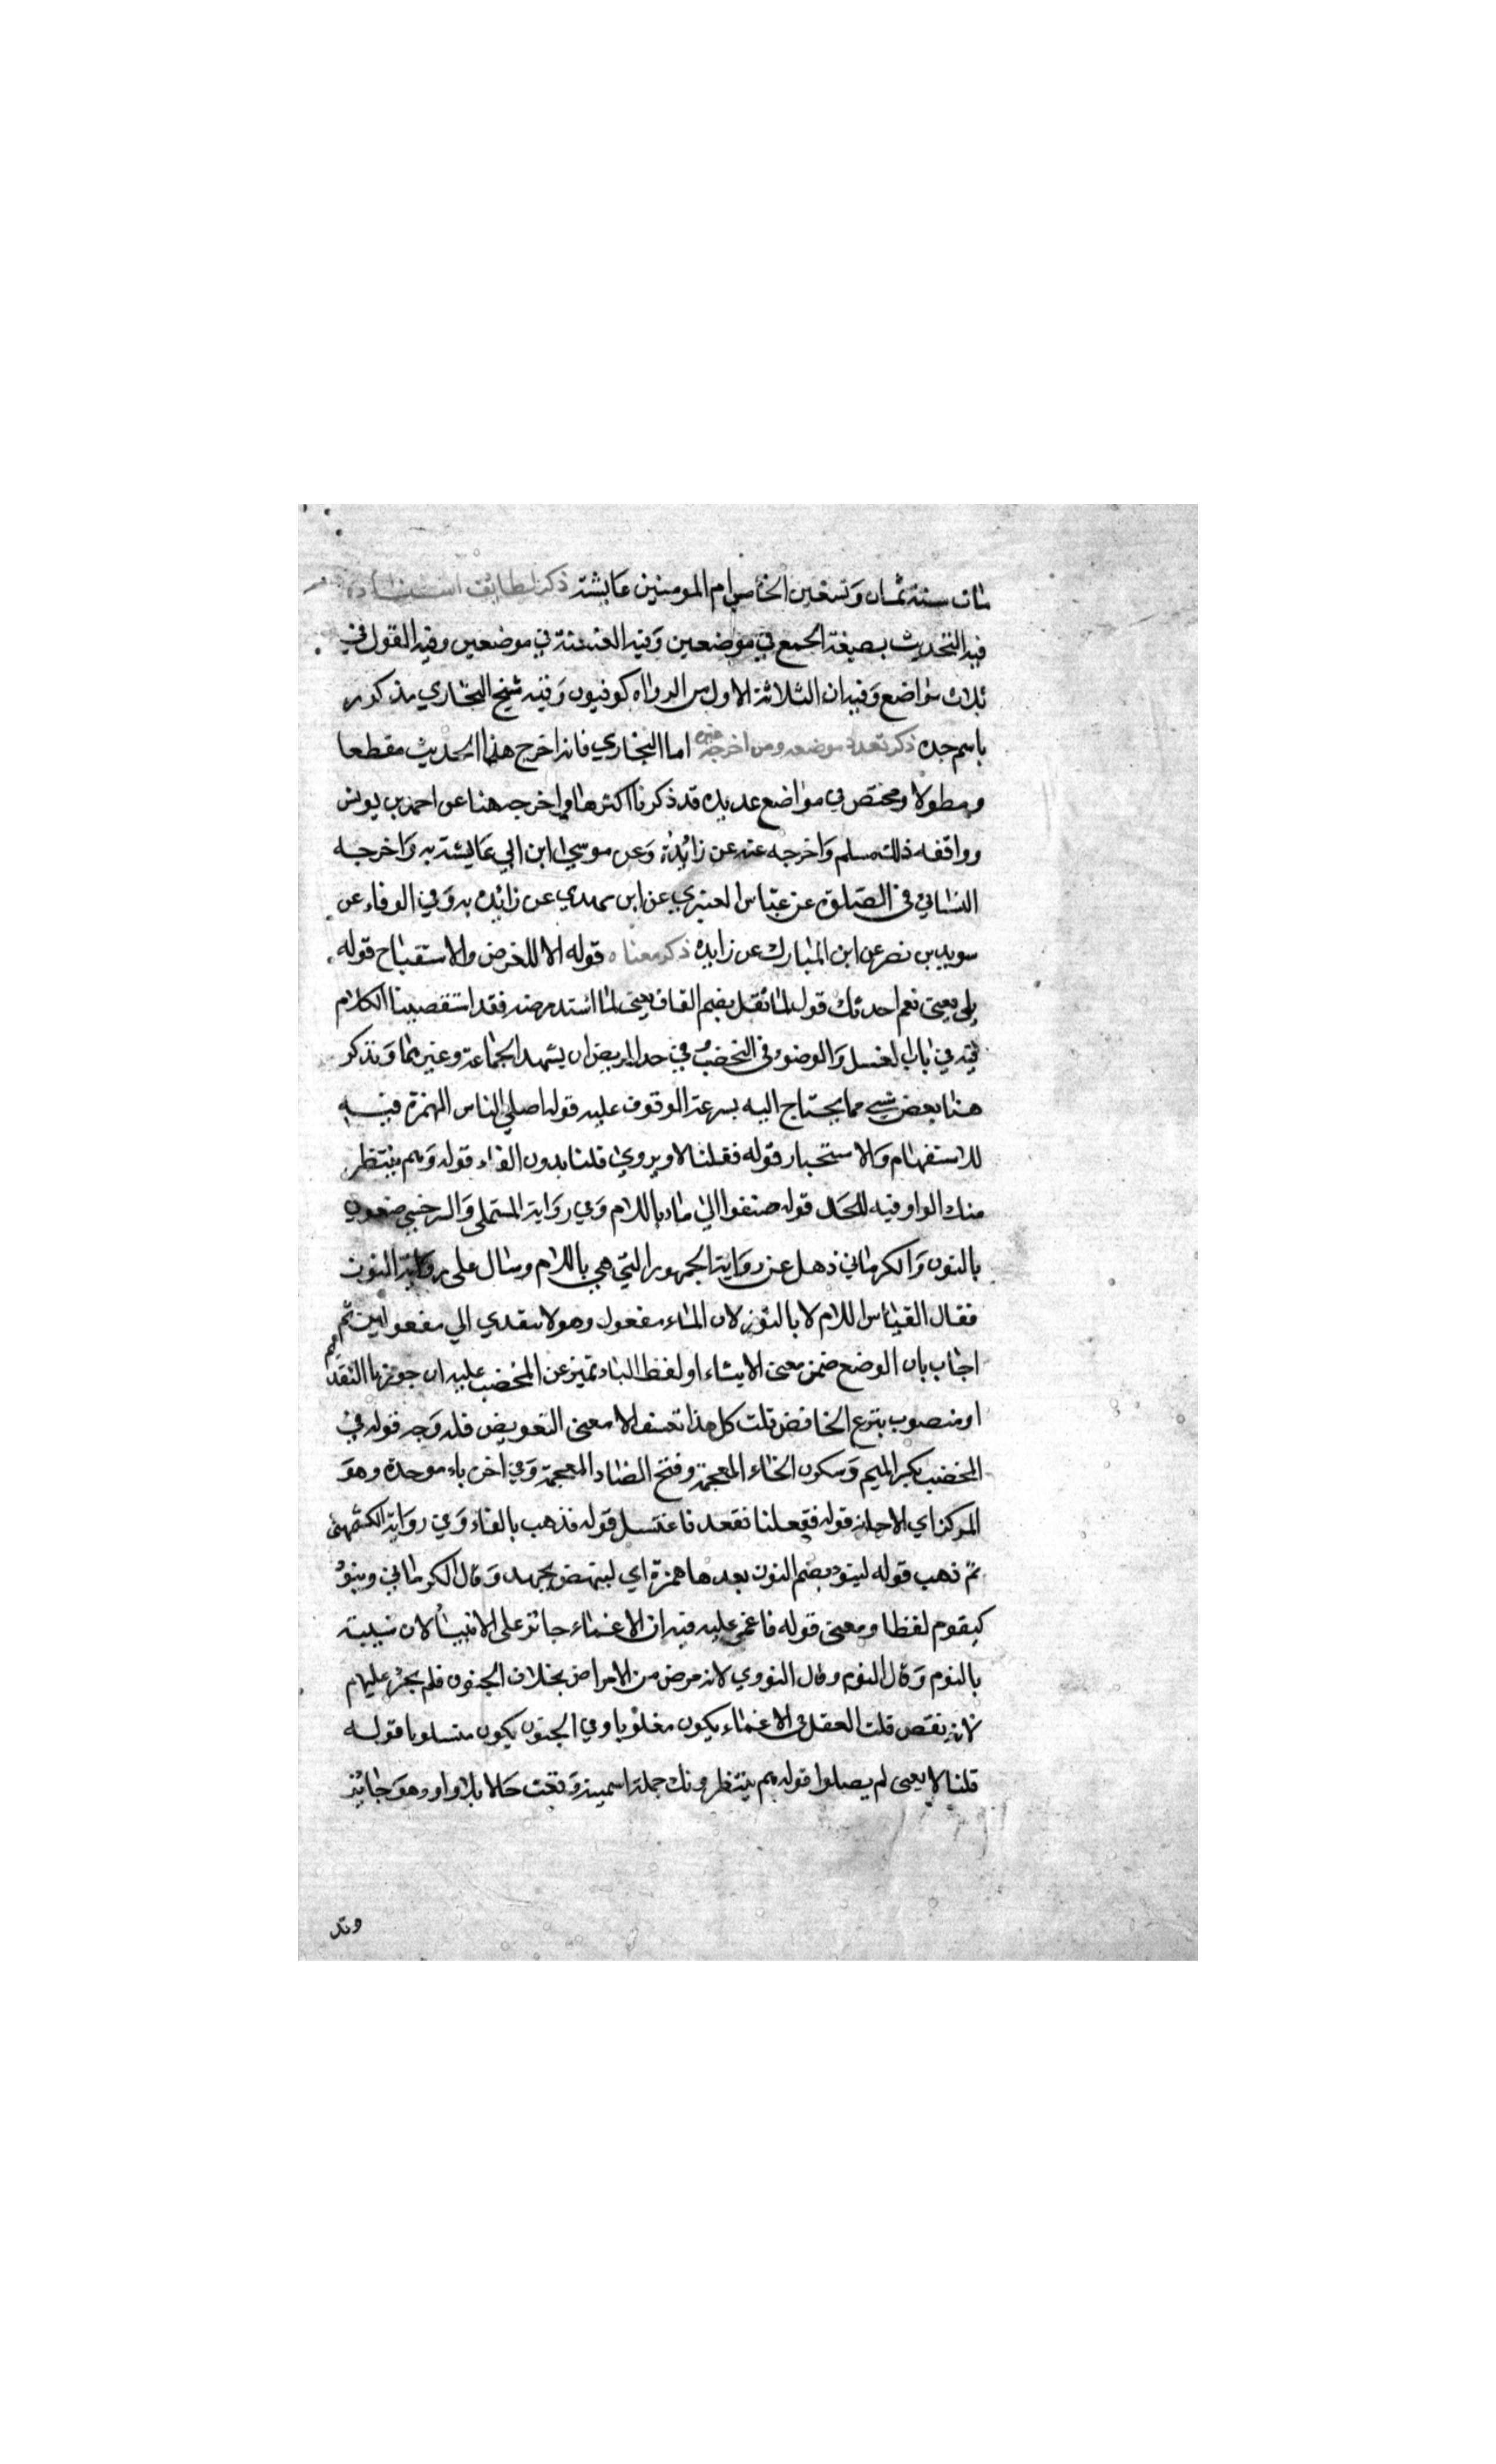 مات سنة ثمان وتسعين الخامس ام المومنين عايشة ذكر لطايف اسناده
فيه التحديث بصيغة الجمع في موضعين وفيه العنعنة في موضعين وفيه القول في
ثلاث مواضع وفيه ان الثلاثة الاول من الرواه كوفيون وفيه شيخ البخاري مذكور
باسم جده ذكر تعدد موضعه ومن اخرجه غيره اما البخاري فانه اخرج هذا الحديث مقطعا
ومطولا ومختصر في مواضع عديده قد ذكرنا اكثرها واخرجه هنا عن احمد بن يونس
وواقفه ذلك مسلم واخرجه عنه عن زائدة وعن موسى ابن ابي عايشة به واخرجه
النسائي في الصلوة عن عباس العنبري عن ابن مهدي عن زائده به وفي الوفاء عن
سويد بن نصر عن ابن المبارك عن زايده ذكر معناه قوله الا للغرض والاستقباح قوله
بلى يعني نعم احدثك قوله لما ثقل بضم القاف يعني لما اشتد مرضه فقد استقصينا الكلام
فيه في باب الغسل والوضوء في المخضب في حد المريض ان يشهد الجماعة وغيرهما ونذكر
هنا بعض شيء مما يحتاج اليه بسرعة الوقوف عليه قوله اصلى الناس الهمزة فيه
للاستفهام والاستخبار قوله فقلنا لا ويروى قلنا بدون الفاء قوله وهم ينتظر
منك الواو فيه للحال قوله ضعفوا الى ماء باللام وفي رواية المستملي والسرخسي ضعوني
بالنون والكرماني ذهل عن رواية الجمهور التي هي باللام وسال على رواية النون
فقال القياس اللام لا بالنون لان الماء مفعول وهو لا يتعدي الي مفعولين ثم
اجاب بان الوضع ضمن معنى الايتاء او لفظ الماء تميز عن المخضب عليه ان جوزنا التقديم
او منصوب بنزع الخافض قلت كل هذا تعسف الا معنى التعويض فله وجه قوله في
المخضب بكسر الميم وسكون الخاء المعجمة وفتح الضاد المعجمة وفي اخره باء موحدة وهو
المركن اي الاجانه قوله ففعلنا فقعد فاغتسل قوله فذهب بالفاء وفي رواية الكشمهني
ثم ذهب قوله لينوء بضم النون بعدها همزة اي لينهض بجهد وقال الكرماني وينوء
كيقوم لفظا ومعنى قوله فاغمي عليه فيه ان الاغماء جائز على الانبياء لان شبيه
بالنوم وقال النوم وقال النووي لانه مرض من الامراض بخلاف الجنون فلم يجز عليهم
لانه نقص قلت العقل في الاغماء يكون مغلوبا وفي الجنون يكون مسلوبا قوله
قلنا لا يعني لم يصلوا قوله هم ينتظرونك جملة اسمية وقعت حالا بلا واو وهو جائز
وقد